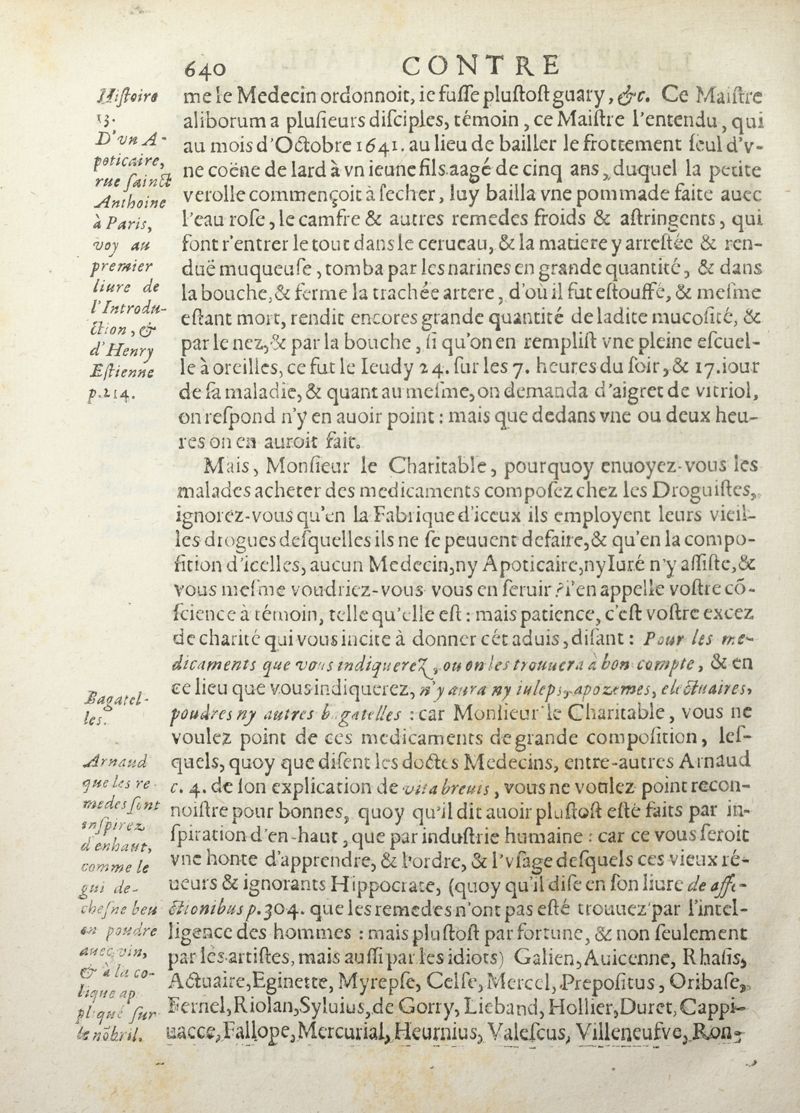 640 CONTRE
me le Medecin ordonnoit, ie fuſſe pluſtoſt guary, &c. Ce Maiſtre
aliborum a pluſieurs diſciples, témoin, ce Maiſtre l'entendu, qui
au mois d'Octobre 1641. au lieu de bailler le frottement ſeul d'v-
ne coëne de lard à vn ieune fils aagé de cinq ans, duquel la petite
verolle commençoit à ſecher, luy bailla vne pommade faite auec
l'eau roſe, le camfre & autres remedes froids & aſtringents, qui
font r'entrer le tout dans le cerueau, & la matiere y arreſtée & ren-
duë muqueuſe, tomba par les narines en grande quantité, & dans
la bouche, & ferme la trachée artere, d'où il fut eſtouffé, & meſme
eſtant mort, rendit encores grande quantité de ladite mucoſité, &
par le nez, & par la bouche, ſi qu'on en rempliſt vne pleine eſcuel-
le à oreilles, ce fut le Ieudy 24. ſur les 7. heures du ſoir, & 17. iour
de ſa maladie, & quant au meſme, on demanda d'aigret de vitriol,
on reſpond n'y en auoir point : mais que dedans vne ou deux heu-
res on en auroit fait.
Hiſtoire
13.
D'vn A-
poticaire,
rue ſainct
Anthoine
à Paris,
voy au
premier
liure de
l'Introdu-
ction, &
d'Henry
Eſtienne
p.214.
Mais, Monſieur le Charitable, pourquoy enuoyez-vous les
malades acheter des medicaments compoſez chez les Droguiſtes,
ignorez-vous qu'en la Fabrique d'iceux ils employent leurs vieil-
les drogues deſquelles ils ne ſe peuuent defaire, & qu'en la compo-
ſition d'icelles, aucun Medecin, ny Apoticaire, ny Iuré n'y aſſiſte, &
vous meſme voudriez-vous vous en ſeruir ? i'en appelle voſtre cõ-
ſcience à témoin, telle qu'elle eſt : mais patience, c'eſt voſtre excez
de charité qui vous incite à donner cét aduis, diſant : Pour les me-
dicaments que vous indiquerez, ou on les trouuera à bon compte, & en
ce lieu que vous indiquerez, n'y aura ny iuleps, apozemes, electuaires,
poudres ny autres bagatelles : car Monſieur le Charitable, vous ne
voulez point de ces medicaments de grande compoſition, leſ-
quels, quoy que diſent les doctes Medecins, entre-autres Arnaud
c. 4. de ſon explication de vita breuis, vous ne voulez point recon-
noiſtre pour bonnes, quoy qu'il dit auoir pluſtoſt eſté faits par in-
ſpiration d'en-haut, que par induſtrie humaine : car ce vous ſeroit
vne honte d'apprendre, & l'ordre, & l'vſage deſquels ces vieux ré-
ueurs & ignorants Hippocrate, (quoy qu'il diſe en ſon liure de affe-
ctionibus p. 304. que les remedes n'ont pas eſté trouuez par l'intel-
ligence des hommes : mais pluſtoſt par fortune, & non ſeulement
par les artiſtes, mais auſſi par les idiots) Galien, Auicenne, Rhaſis,
Actuaire, Eginette, Myrepſe, Celſe, Mercel, Prepoſitus, Oribaſe,
Fernel, Riolan, Syluius, de Gorry, Lieband, Hollier, Duret, Cappi-
uacce, Fallope, Mercurial, Heurnius, Valeſcus, Villeneufve, Ron-
Bagatel-
les.
Arnaud
que les re-
medes ſont
inſpirez
d'enhaut,
comme le
gui de-
cheſne beu
en poudre
auec vin,
& à la co-
lique ap
pliqué ſur
le nõbril.